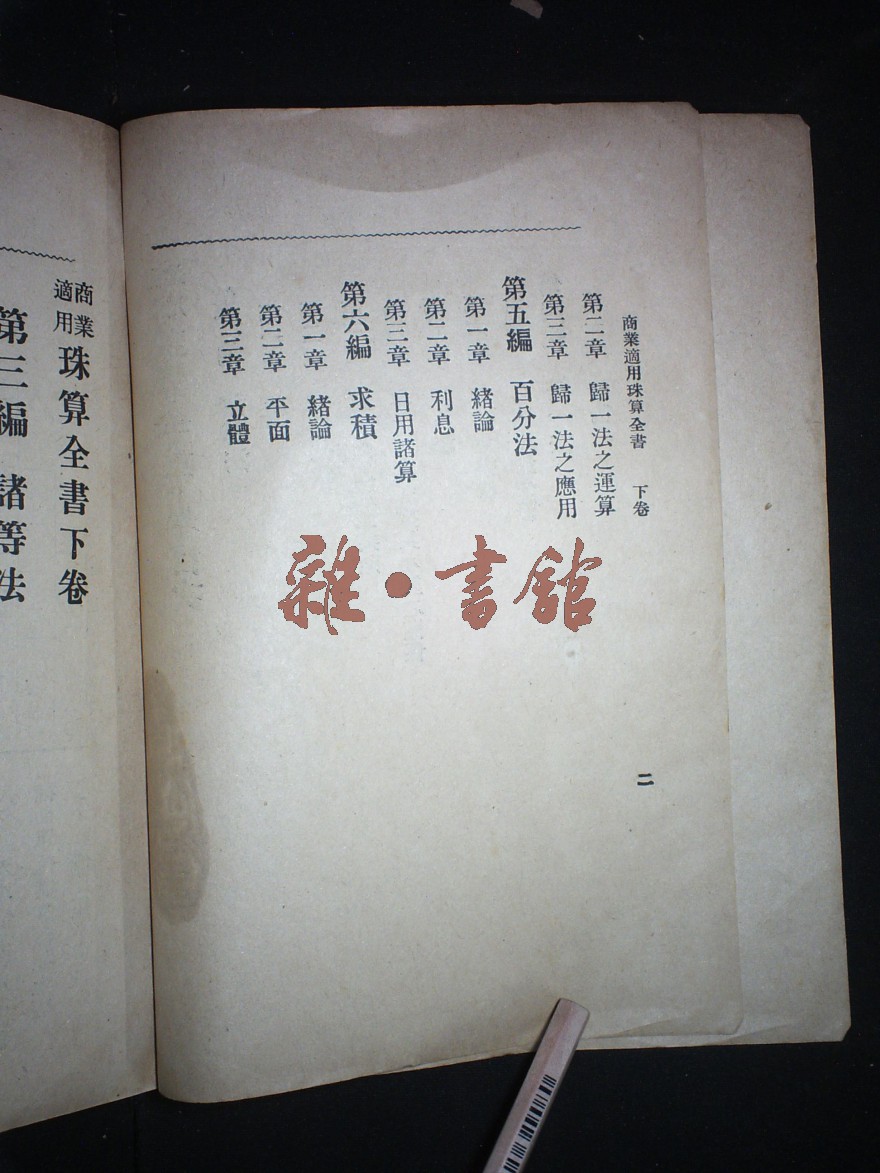 商業適用珠算全書　下卷
第二章　歸一法之運算
第三章　歸一法之應用
第五編　百分法
第一章　緒論
第二章　利息
第三章　日用諸算
第六編　求積
第一章　緒論
第二章　平面
第三章　立體
二
商業適用珠算全書下卷
第三編　諸等法
雜・書館